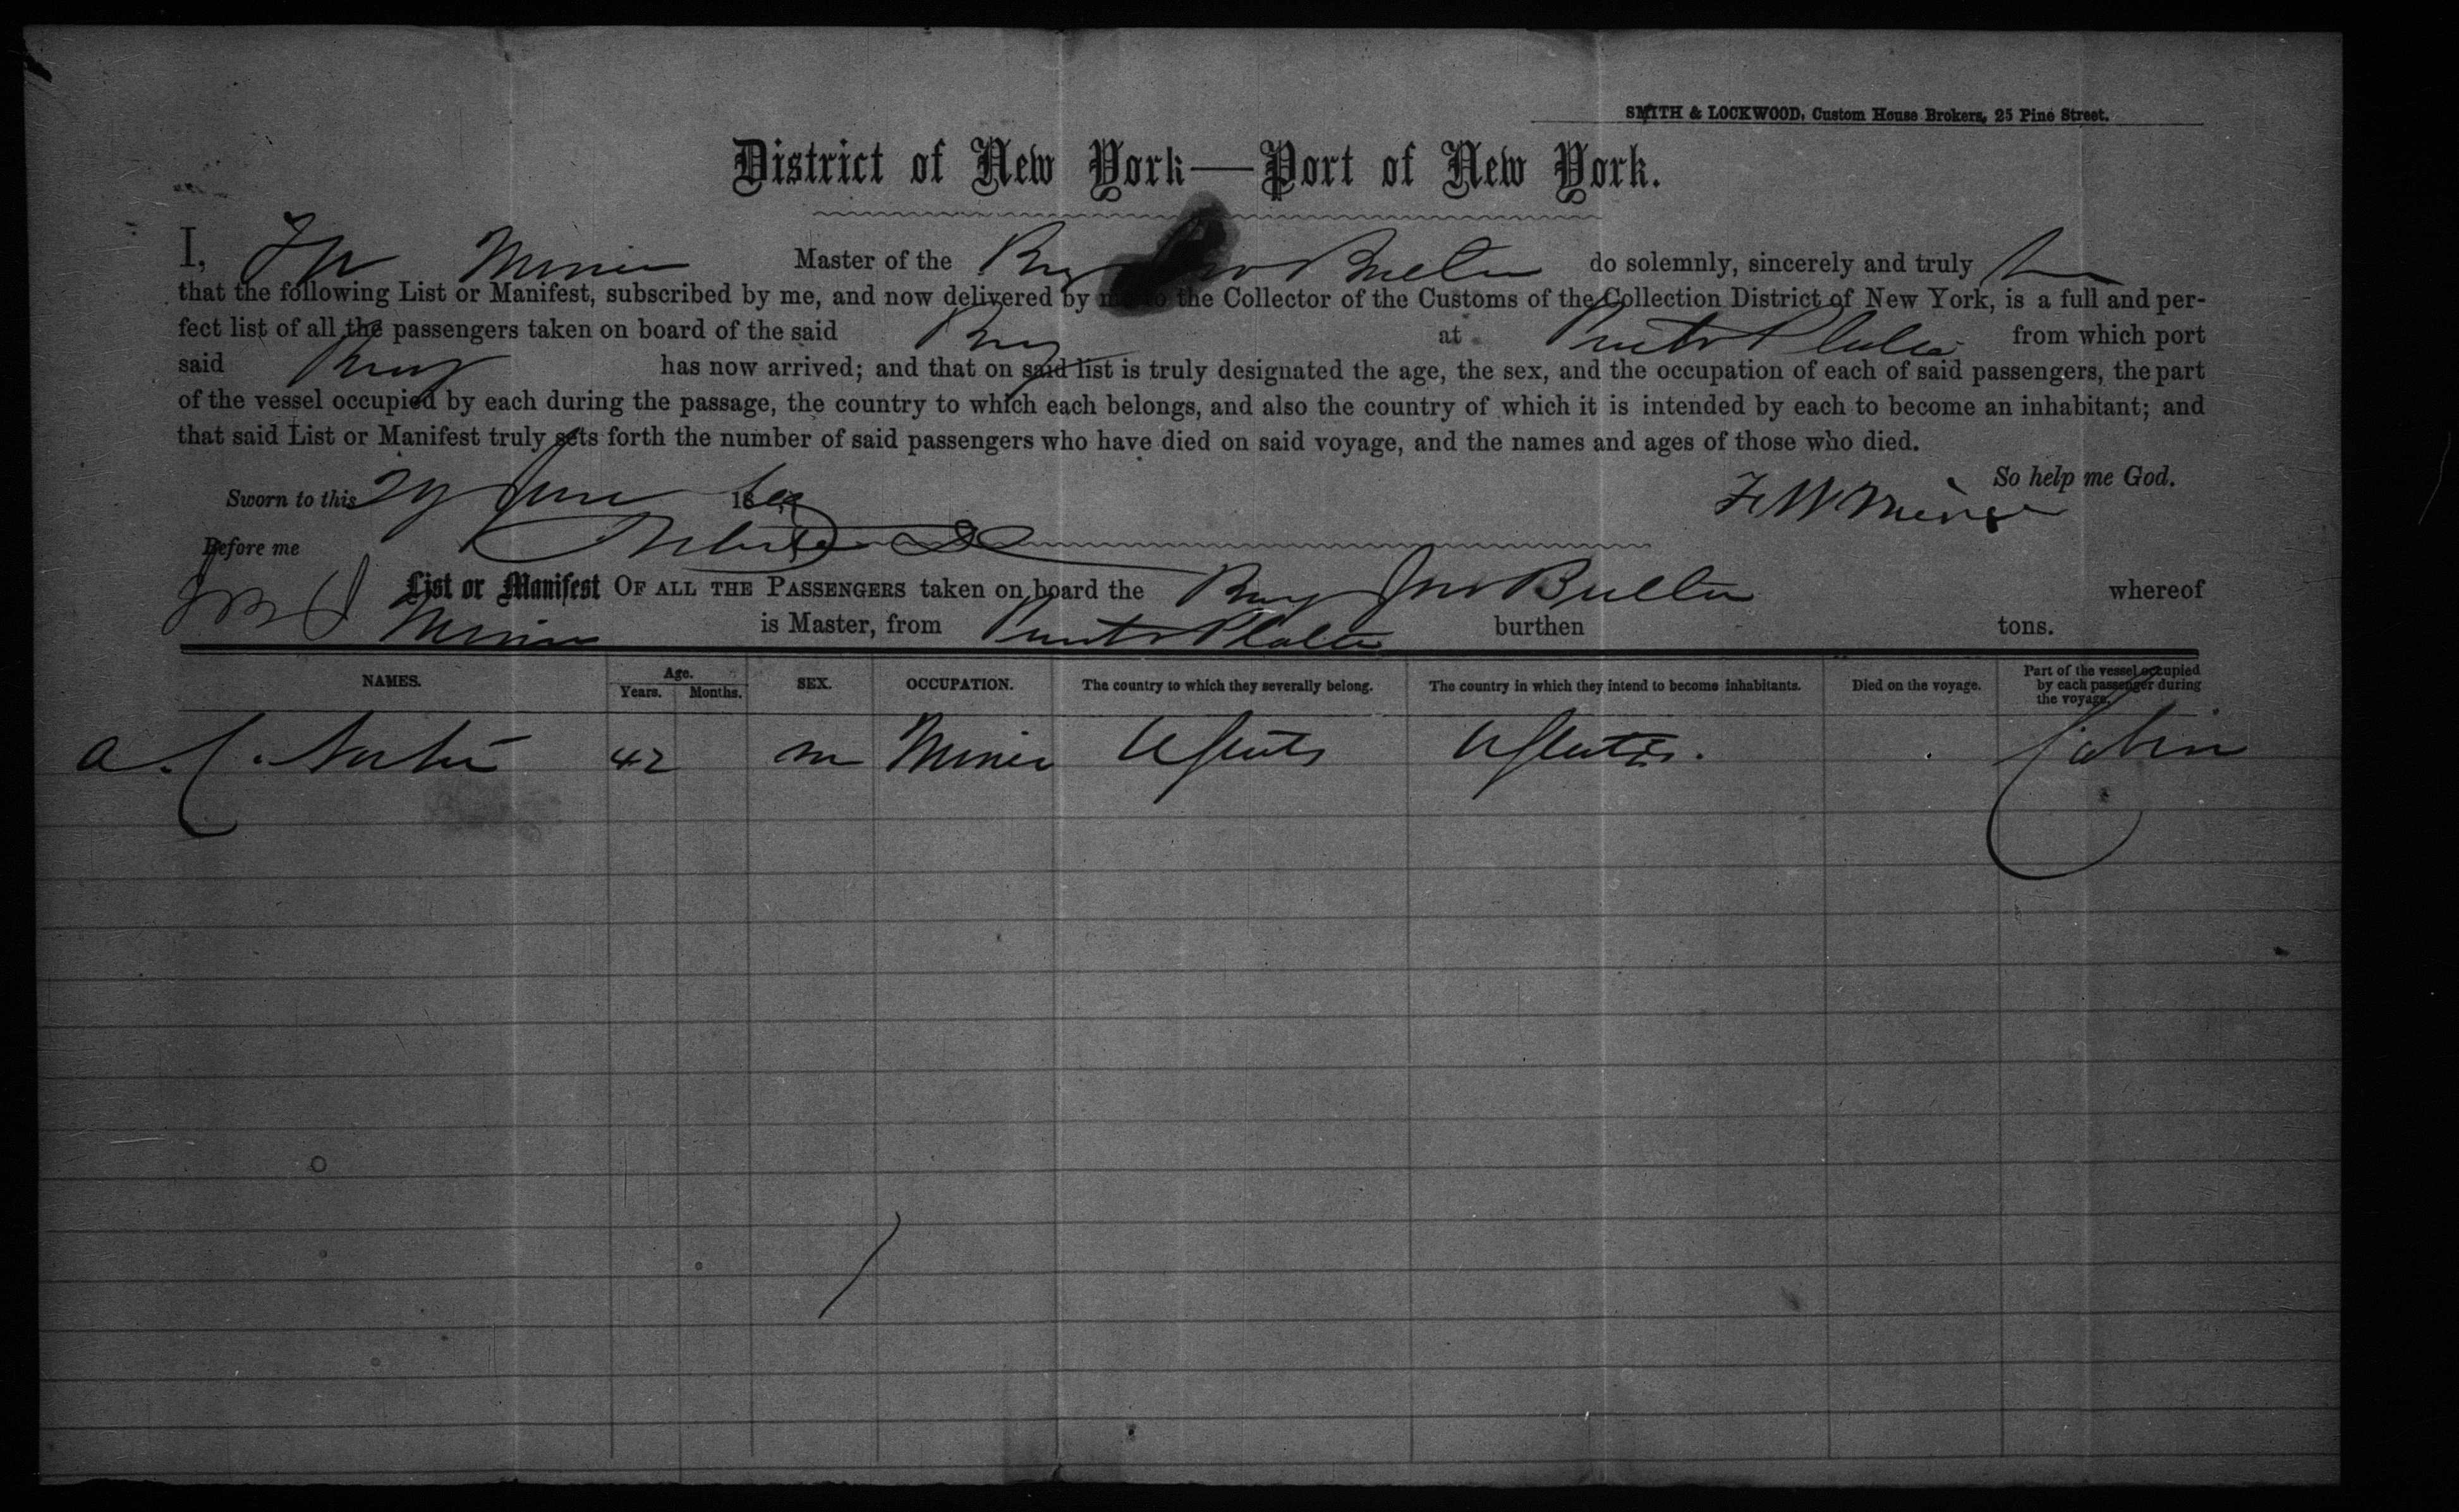 SMITH & LOCKWOOD, Custom House Brokers, 25 Pine Street.
District of New York—Port of New York.
I, F W Master of the Brig do solemnly, sincerely and truly
that the following List or Manifest, subscribed by me, and now delivered by me to the Collector of the Customs of the Collection District of New York, is a full and per-
fect list of all the passengers taken on board of the said Brig at from which port
said Brig has now arrived; and that on said list is truly designated the age, the sex, and the occupation of each of said passengers, the part
of the vessel occupied by each during the passage, the country to which each belongs, and also the country of which it is intended by each to become an inhabitant; and
that said List or Manifest truly sets forth the number of said passengers who have died on said voyage, and the names and ages of those who died.
So help me God.
Sworn to this 29 June 18
F W
Before me
List or Manifest OF ALL THE PASSENGERS taken on board the Brig Jno whereof
is Master, from burthen tons.
NAMES. Age. Years. Months. SEX. OCCUPATION. The country to which they severally belong. The country in which they intend to become inhabitants. Died on the voyage. Part of the vessel occupied by each passenger during the voyage.
A. C. 42 m Miner U States U States. Cabin